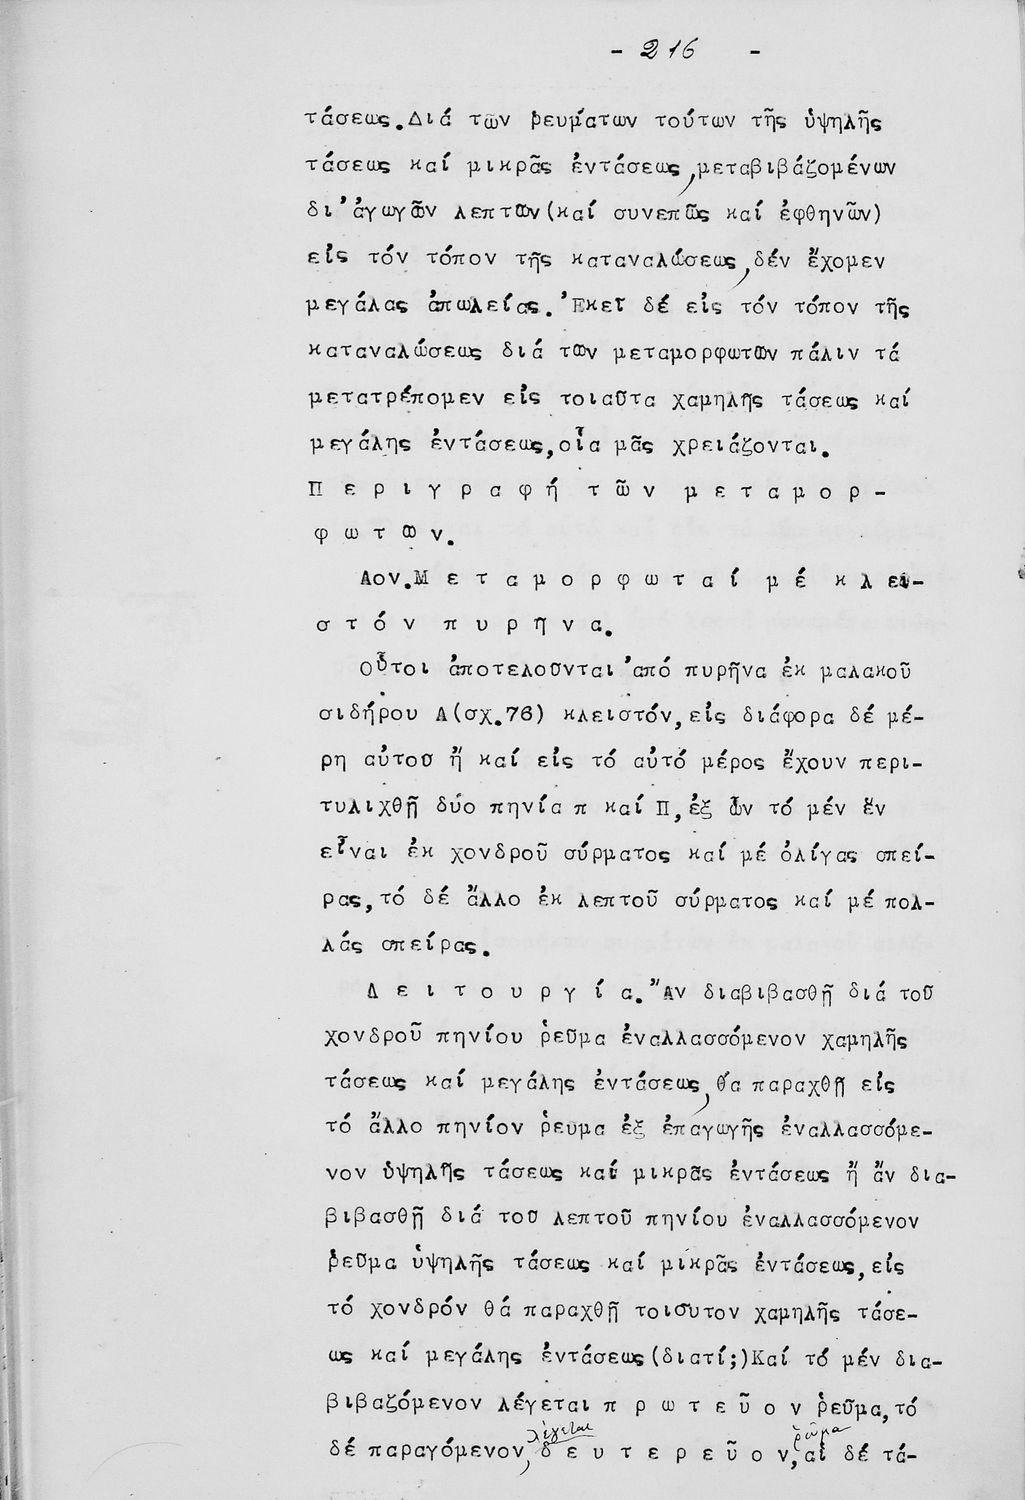 - 216 -
τάσεως.Διά τῶν ῥευμάτων τούτων τῆς ὑψηλῆς
τάσεως καί μικρᾶς ἐντάσεως,μεταβιβάζομένων
δι'ἀγωγῶν λεπτῶν(καί συνεπῶς καί ἐφθηνῶν)
εἰς τόν τόπον τῆς καταναλώσεως,δέν ἔχομεν
μεγάλας ἀπωλείας.Ἐκεῖ δέ εἰς τόν τόπον τῆς
καταναλώσεως διά τῶν μεταμορφωτῶν πάλιν τά
μετατρέπομεν εἰς τοιαῦτα χαμηλῆς τάσεως καί
μεγάλης ἐντάσεως,οἷα μᾶς χρειάζονται.
Π ε ρ ι γ ρ α φ ή τ ῶ ν μ ε τ α μ ο ρ -
φ ω τ ῶ ν.
Αον.Μ ε τ α μ ο ρ φ ω τ α ί μ έ κ λ ει-
σ τ ό ν π υ ρ ῆ ν α.
Οὗτοι ἀποτελοῦνται ἀπό πυρῆνα ἐκ μαλακοῦ
σιδήρου Α(σχ.76) κλειστόν,εἰς διάφορα δέ μέ-
ρη αὐτοῦ ἤ καί εἰς τό αὐτό μέρος ἔχουν περι-
τυλιχθῆ δύο πηνία π καί Π,ἐξ ὧν τό μέν ἕν
εἶναι ἐκ χονδροῦ σύρματος καί μέ ὀλίγας σπεί-
ρας,τό δέ ἄλλο ἐκ λεπτοῦ σύρματος καί μέ πολ-
λάς σπείρας.
Λ ε ι τ ο υ ρ γ ί α.Ἄν διαβιβασθῆ διά τοῦ
χονδροῦ πηνίου ῥεῦμα ἐναλλασσόμενον χαμηλῆς
τάσεως καί μεγάλης ἐντάσεως,θά παραχθῆ εἰς
τό ἄλλο πηνίον ῥευμα ἐξ ἐπαγωγῆς ἐναλλασσόμε-
νον ὑψηλῆς τάσεως καί μικρᾶς ἐντάσεως ἤ ἄν δια-
βιβασθῆ διά τοῦ λεπτοῦ πηνίου ἐναλλασσόμενον
ῥεῦμα ὑψηλῆς τάσεως καί μικρᾶς ἐντάσεως,εἰς
τό χονδρόν θά παραχθῆ τοιοῦτον χαμηλῆς τάσε-
ως καί μεγάλης ἐντάσεως(διατί;)Καί τό μέν δια-
βιβαζόμενον λέγεται π ρ ω τ ε ῦ ο ν ῥεῦμα,τό
λέγεται ῥεῦμα
δέ παραγόμενον,δ ε υ τ ε ρ ε ῦ ο ν,αἱ δέ τά-